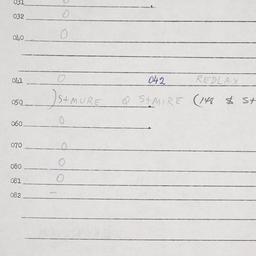 031 0
032 0
040 0
041 0 042 REDLAX
050 )StMURE @ StMIRE (148 & St
060 0
070 0
080 0
081 0
082 —